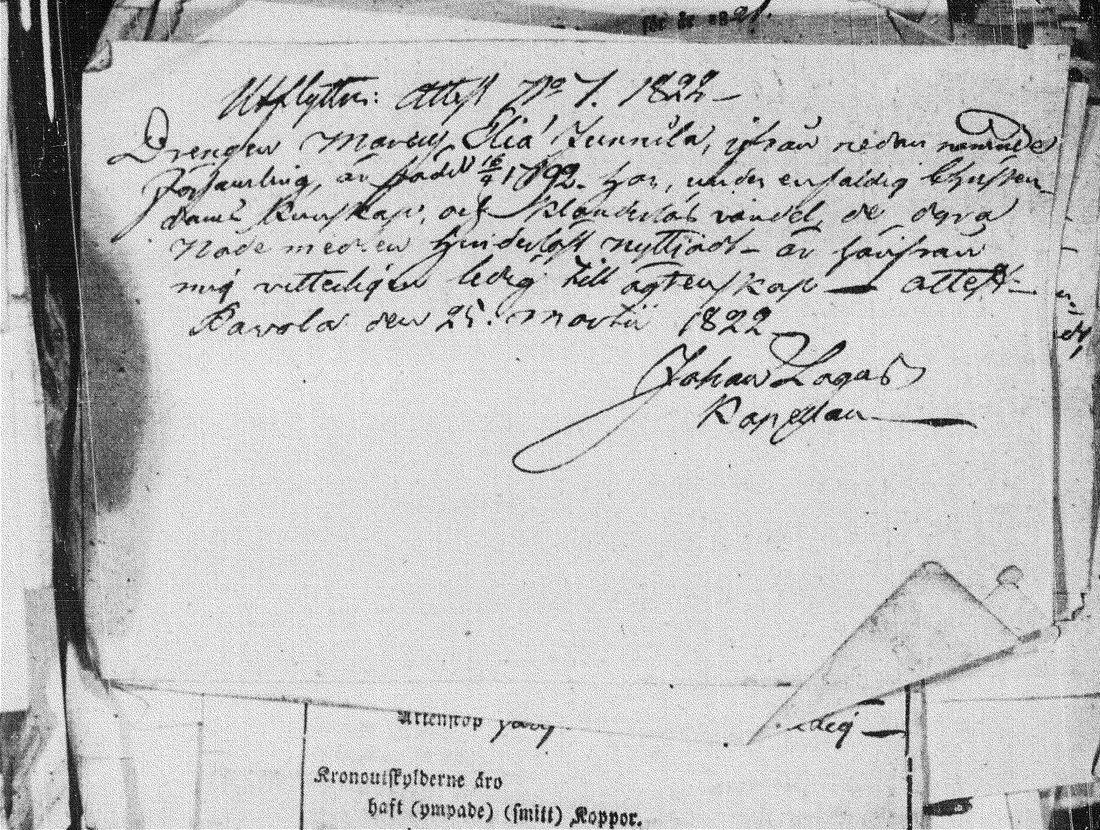 för år 1821.
Utflyttn: Attest No 7. 1822 –
Drengen Elia Junnila, ifrån nedan nämnde
församling, är född 16/4 1792. har, under enfaldig Christen-
doms kunskap, och klanderlös vandel, de dyra
Nåde medlen hinderlöst nyttjadt – är härifrån
mig vetterligen ledig till ägtenskap — attest: –
Pavola den 25. Martii 1822
Johan Lagus
Kapellan
Äktenskap
ledig —
Kronoutskylderne äro
haft (ympade) (smitt) Koppor.